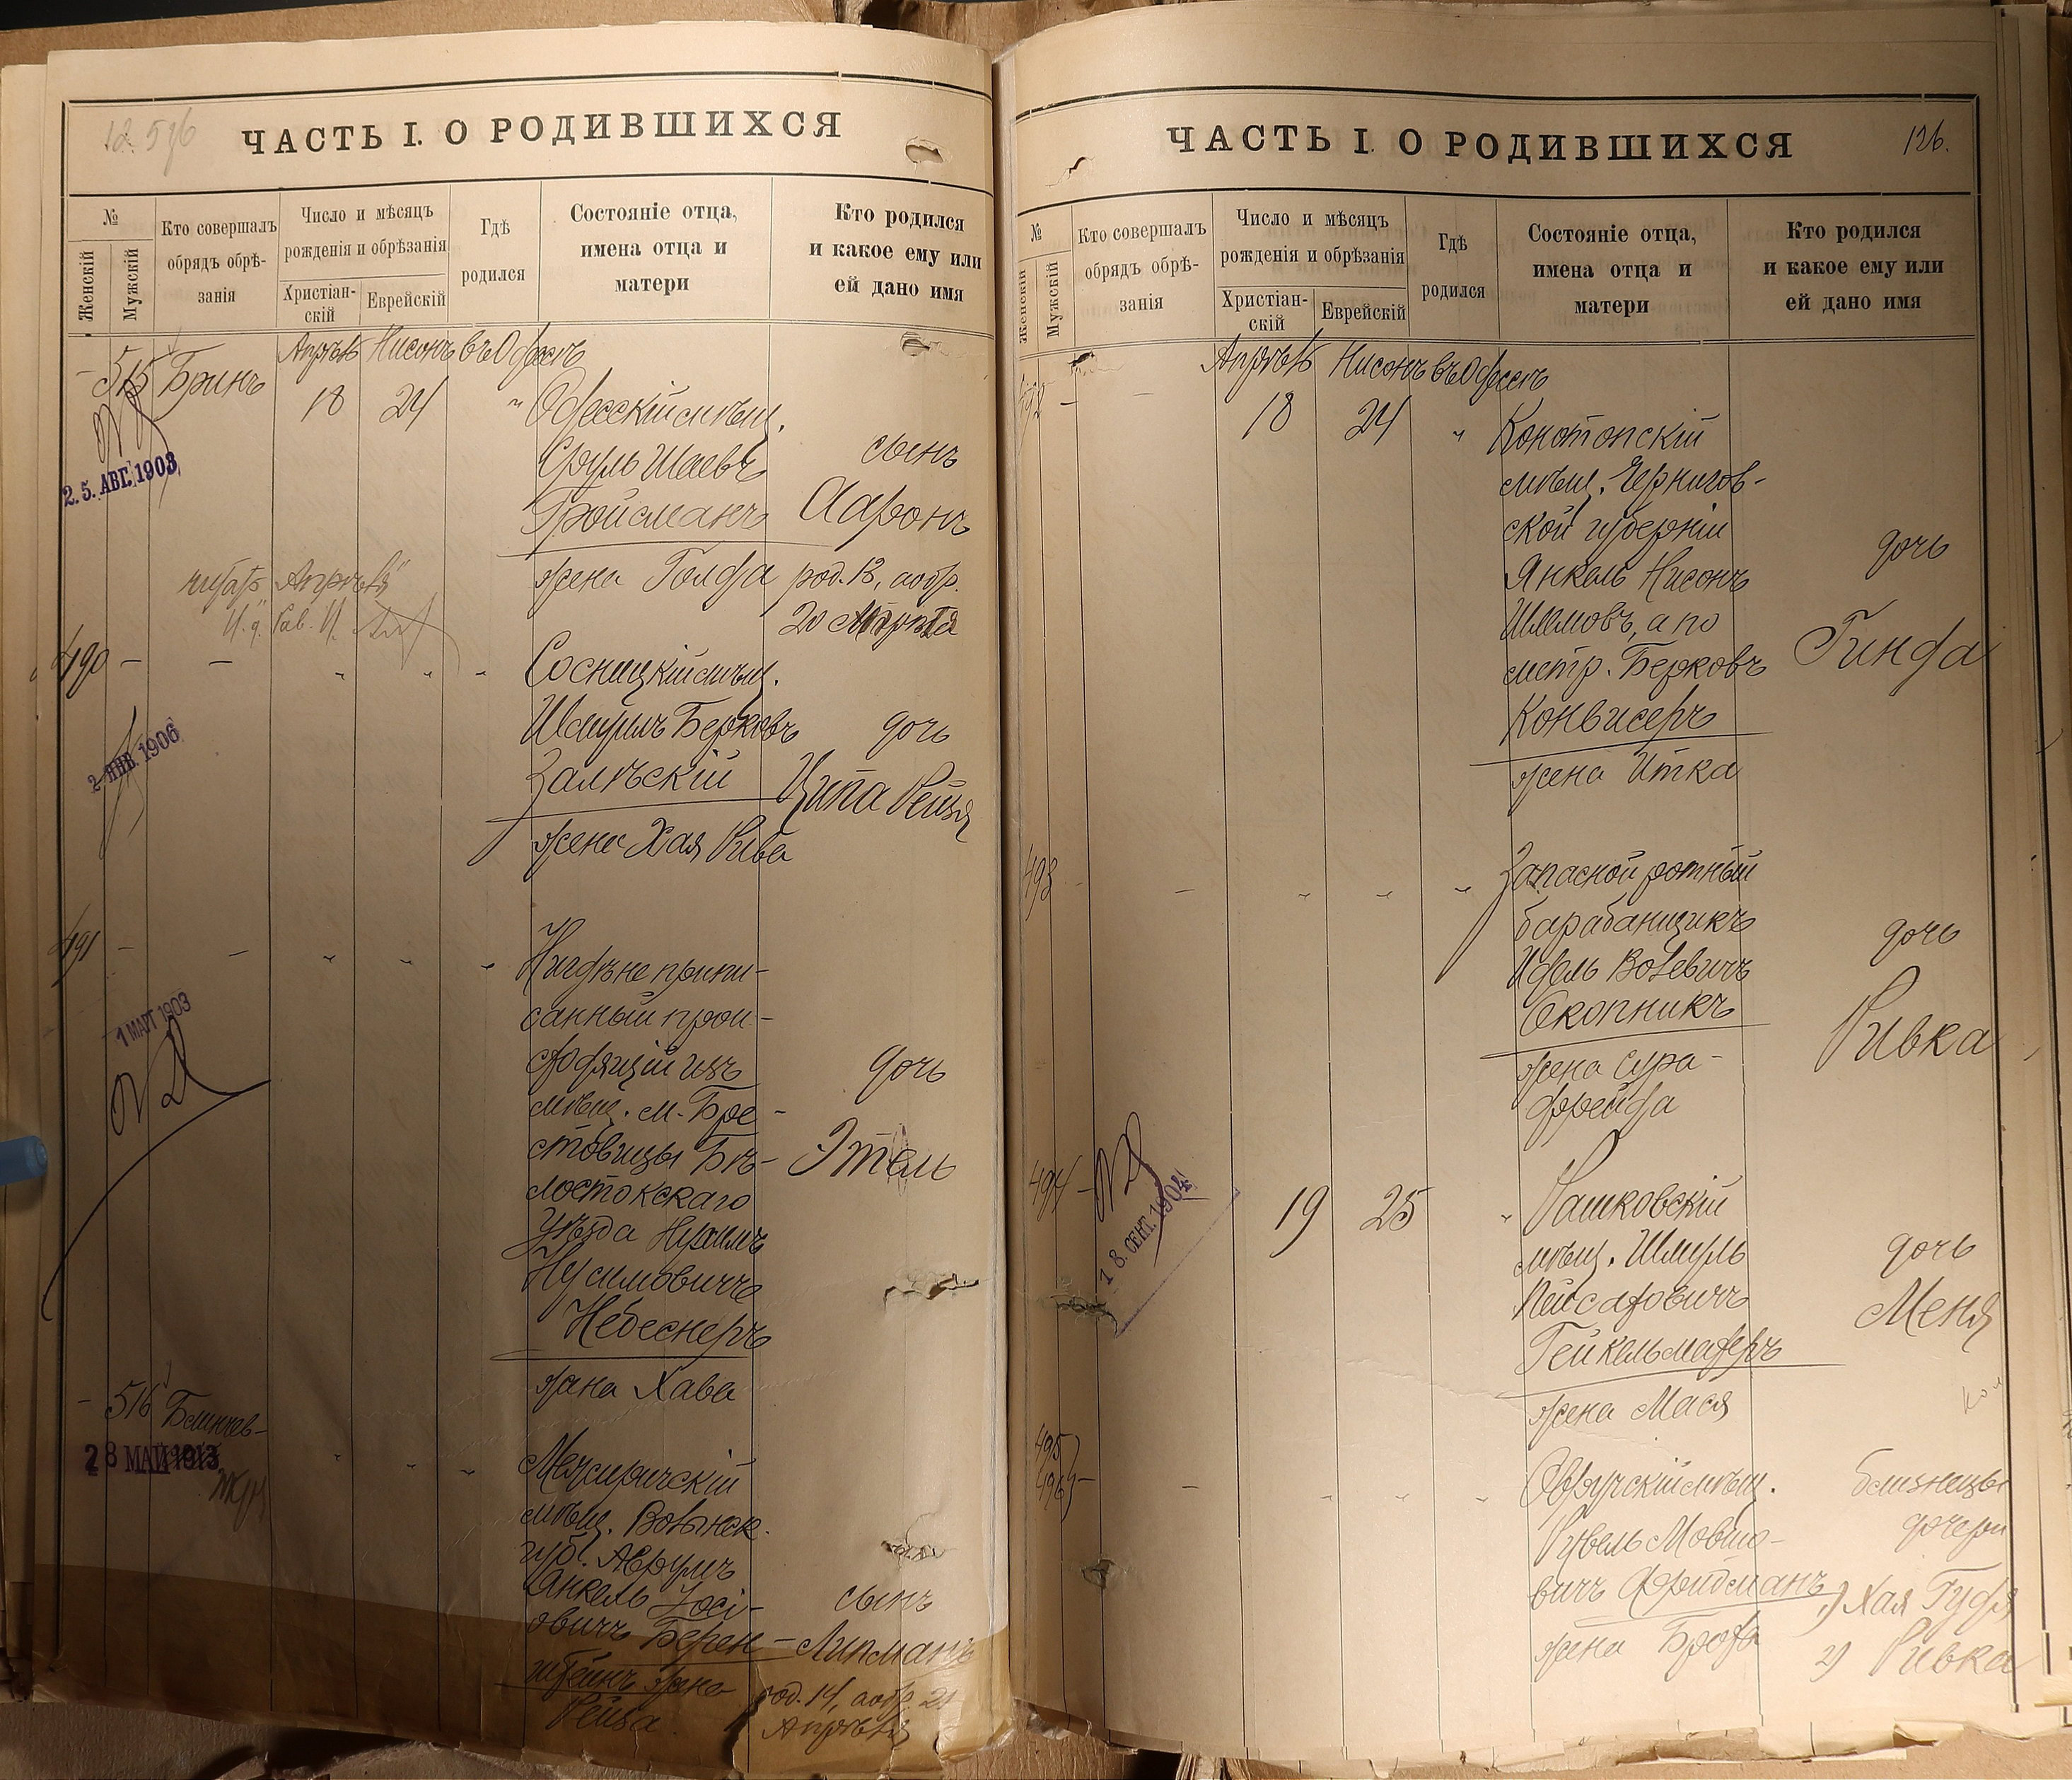 ЧАСТЬ I. О РОДИВШИХСЯ
№
Женскій
Мужскій
Кто совершалъ
обрядъ обрѣ-
занія
Число и мѣсяцъ
рожденія и обрѣзанія
Христіан-
скій
Еврейскій
Гдѣ
родился
Состояніе отца,
имена отца и
матери
Кто родился
и какое ему или
ей дано имя
Апрѣль Нисонъ въ Одессѣ
515 Бринъ
18 24 " Одесскій мѣщ.
Сруль Шаевъ
Гройсманъ
жена Голда
сынъ
Ааронъ
род. 12, а обр.
20 Апрѣля
25. АВГ. 1903
490 — —
Сосницкій мѣщ.
Шмуилъ Берковъ
Залѣскій
жена Хая Рива
дочь
Ципа Рейзя
2 ЯНВ. 1906
491 — —
Нигдѣ не припи-
санный прои-
сходящій изъ
мѣщ. м. Бре-
стовицы Бѣ-
лостокскаго
уѣзда Нухимъ
Нусимовичъ
Небеснеръ
жена Хава
дочь
Этель
1 МАРТ 1903
— 516
28 МАЙ 1913
Межиричскій
мѣщ. Волынск.
губ. Аврумъ
Янкель Іосі-
овичъ Берен-
штейнъ жена
Рейза.
сынъ
Липманъ
род. 14, а обр. 21
Апрѣля
ЧАСТЬ I. О РОДИВШИХСЯ
126.
№
Женскій
Мужскій
Кто совершалъ
обрядъ обрѣ-
занія
Число и мѣсяцъ
рожденія и обрѣзанія
Христіан-
скій
Еврейскій
Гдѣ
родился
Состояніе отца,
имена отца и
матери
Кто родился
и какое ему или
ей дано имя
Апрѣль Нисонъ въ Одессѣ
492 — —
18 24 " Конотопскій
мѣщ. Чернигов-
ской губерніи
Янкель Нисонъ
Шлемовъ, а по
метр. Берковъ
Конвисеръ
жена Итка
дочь
Гинда
493 — —
Запасной ротный
барабанщикъ
Идель Волевичъ
Скопникъ
жена Сура-
Фрейда
дочь
Ривка
494 —
18. СЕНТ. 1904
19 25 " Рашковскій
мѣщ. Шмуль
Пейсаховичъ
Гейкельмахеръ
жена Мася
дочь
Меня
495
496 — —
Овручскій мѣщ.
Рувель Мовшо-
вичъ Фридманъ
жена Броха
близнецы
дочери
1) Хая Гудя
2) Ривка